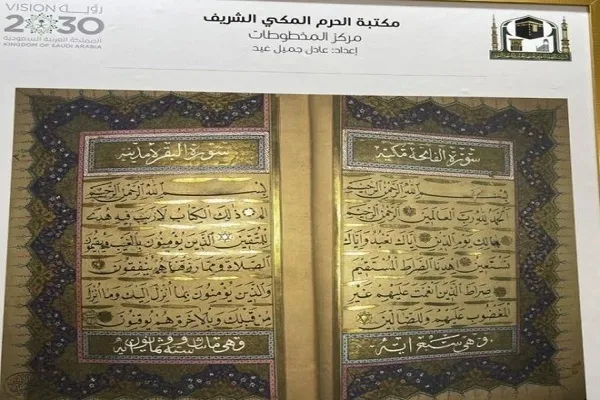 VISION رؤية
2030
المملكة العربية السعودية
KINGDOM OF SAUDI ARABIA
مكتبة الحرم المكي الشريف
مركز المخطوطات
إعداد: عادل جميل عيد
سورة الفاتحة مكية
بسم الله الرحمن الرحيم
الحمد لله رب العالمين الرحمن الرحيم
مالك يوم الدين إياك نعبد وإياك
نستعين اهدنا الصراط المستقيم
صراط الذين أنعمت عليهم غير
المغضوب عليهم ولا الضالين
وهي سبع آية
سورة البقرة مدنية
بسم الله الرحمن الرحيم
الم ذلك الكتاب لا ريب فيه هدى
للمتقين الذين يؤمنون بالغيب ويقيمون
الصلاة ومما رزقناهم ينفقون
والذين يؤمنون بما أنزل إليك وما أنزل
من قبلك وبالآخرة هم يوقنون
وهي مايتان وستة وثمانون آية